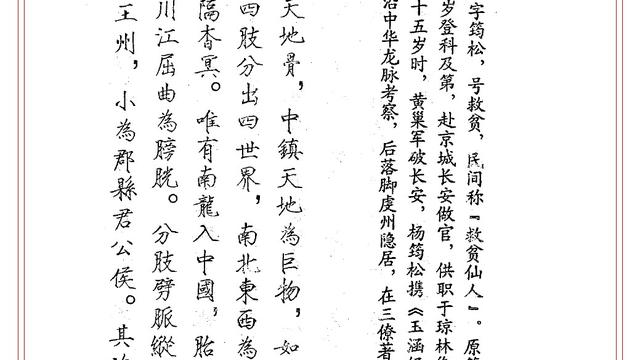 字筠松，号救贫，民间称『救贫仙人』。原
岁登科及第，赴京城长安做官，供职于琼林
十五岁时，黄巢军破长安，杨筠松携《玉涵
中华龙脉考察，后落脚虔州隐居，在三僚著
天地骨，中鎮天地為巨物，如
四肢分出四世界，南北東西為
隔杳冥。唯有南龍入中國，胎
川江屈曲為膀胱。分肢劈脈縱
王州，小為郡縣君公侯。其